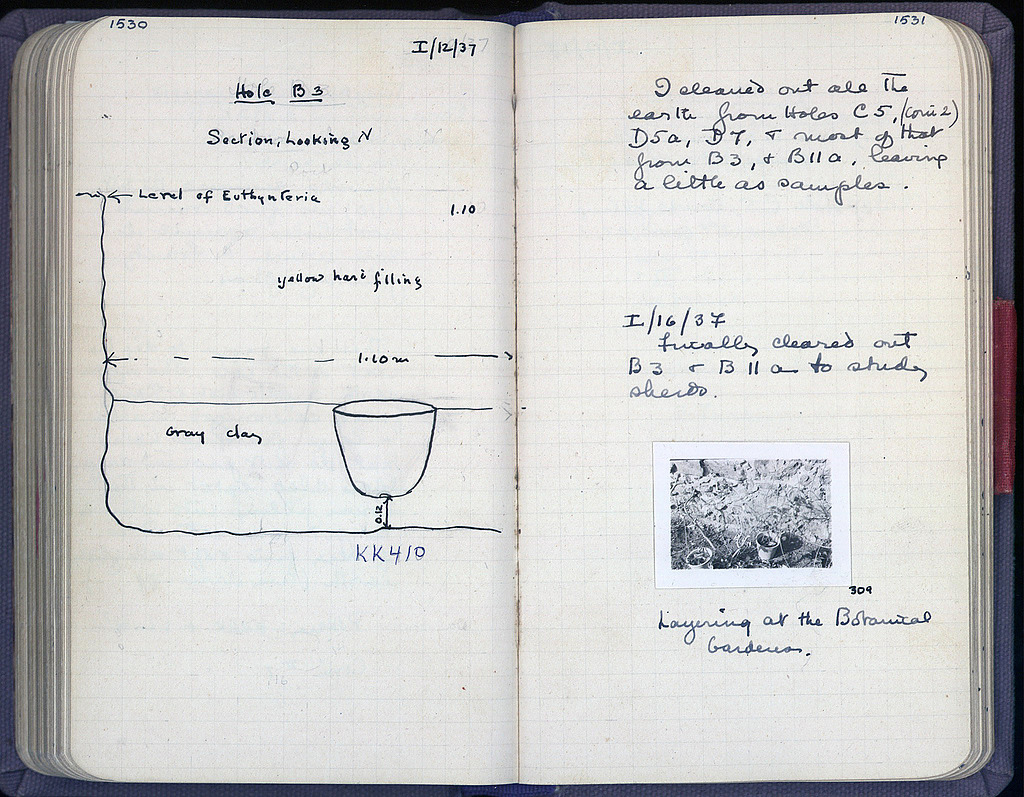 1530
I/12/37
Hole B 3
Section, Looking N
Level of Euthynteria
1.10
yellow hard filling
1.10 m
Gray clay
0.12
KK410
1531
I cleaned out all the
earth from Holes C 5, (coin 2)
D5a, D7, & most of that
from B3, & B11a, leaving
a little as samples.
I/16/37
Finally cleared out
B3 & B11a to study
sherds.
309
Layering at the Botanical
Gardens.